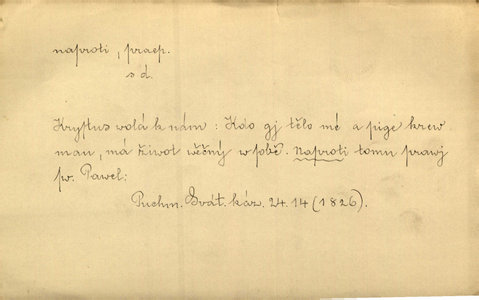 naproti, praep.
s d.
Krystus wolá k nám: Kdo gj tělo mé a pige krew
mau, má život wěčný w sobě. Naproti tomu prawj
sw. Pawel:
Puchm. Svát. káz. 24.14 (1826).